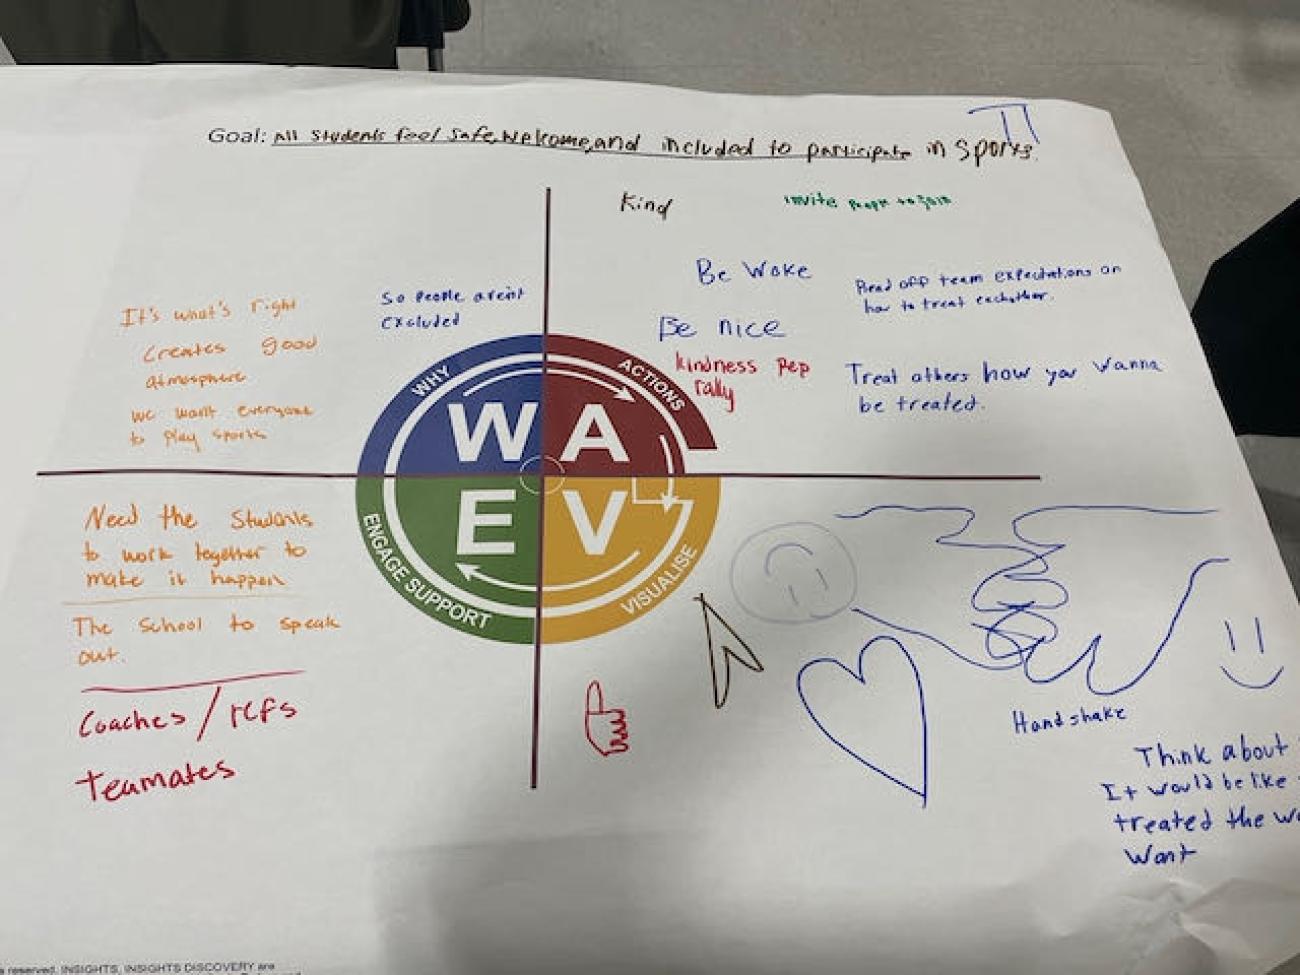 Goal: All Students feel Safe, Welcome, and included to participate in Sports.
Kind
invite people to join
Be Woke
Read off team expectations on
how to treat eachother.
Be nice
kindness Pep
rally
Treat others how you wanna
be treated.
It's what's right
Creates good
atmosphere
we want everyone
to play sports
So People aren't
Excluded
WHY
ACTIONS
W A
E V
ENGAGE SUPPORT
VISUALISE
Need the Students
to work together to
make it happen
The School to Speak
out.
Coaches / refs
teamates
Handshake
Think about
It would be like
treated the
Want
reserved. INSIGHTS, INSIGHTS DISCOVERY are